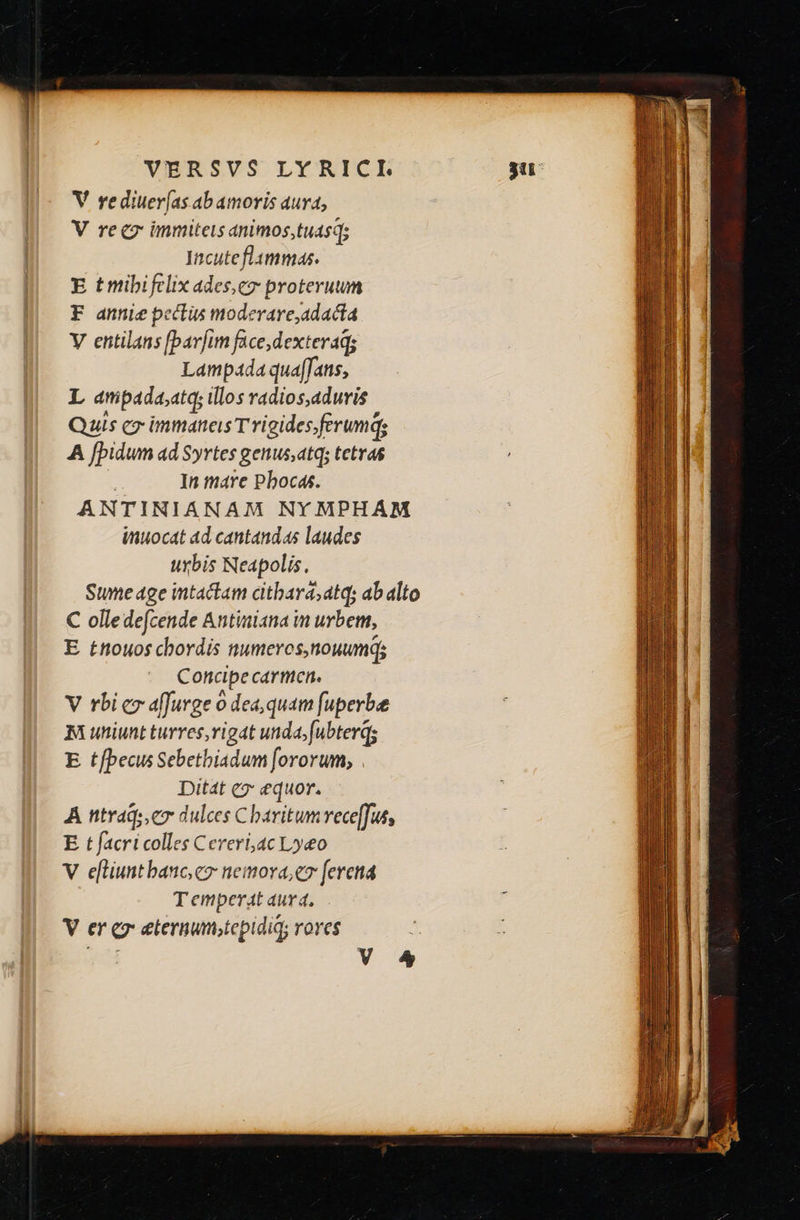 VERSVS LYRICI. 311
V re diuerſas ab amoris aura,
V re & immiteis animos, tuasq́;
Incute flammas.
E t mihi felix ades, & proteruum
F anniæ pectus moderare, adacta
V entilans ſparſim face, dexteraq́;
Lampada quaſſans,
L ampada, atq; illos radios, aduris
Quis & immaneis Trigides, ferumq́;
A ſpidum ad Syrtes genus, atq; tetras
In mare Phocas.
ANTINIANAM NYMPHAM
inuocat ad cantandas laudes
urbis Neapolis.
Sume age intactam citharã, atq; ab alto
C olle deſcende Antiniana in urbem,
E t nouos chordis numeros, nouumq́;
Concipe carmen.
V rbi & aſſurge ô dea, quam ſuperbæ
M uniunt turres, rigat unda, ſubterq́;
E t ſpecus Sebethiadum ſororum,
Ditat & æquor.
A ntraq́;, & dulces Charitum receſſus,
E t ſacri colles Cereri, ac Lyæo
V eſtiunt hanc, & nemora, & ſerena
Temperat aura.
V er & æternum, tepidiq́; rores
V 4